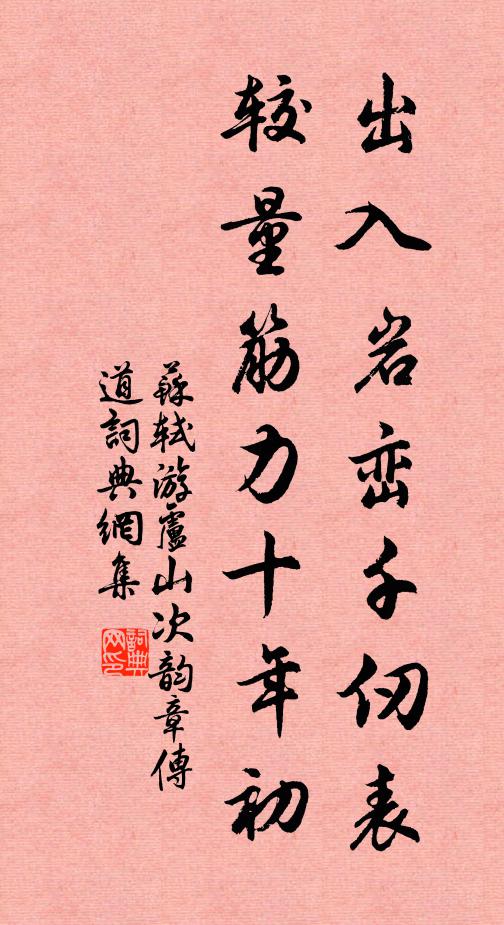 出入岩峦千仞表
较量筋力十年初
蘇轼游廬山次韵章傳
道詞典網集
詞典网印